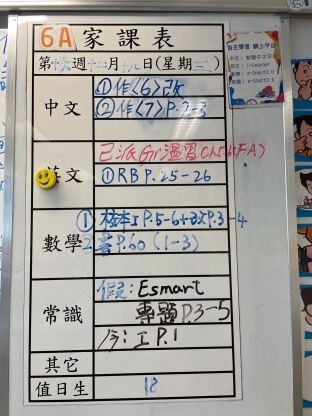 6A 家課表
第十六週十二月十八日(星期三)
中文
①作〈6〉改
②作〈7〉P.2-3
英文
已派Gr溫習Ch5-6(FA)
①RB P.25-26
數學
P.5-6+改P.3-4
②書P.60 (1-3)
常識
假: Esmart
專題P.3-5
今: 工P.1
其它
值日生
18
自主學習 網上平台